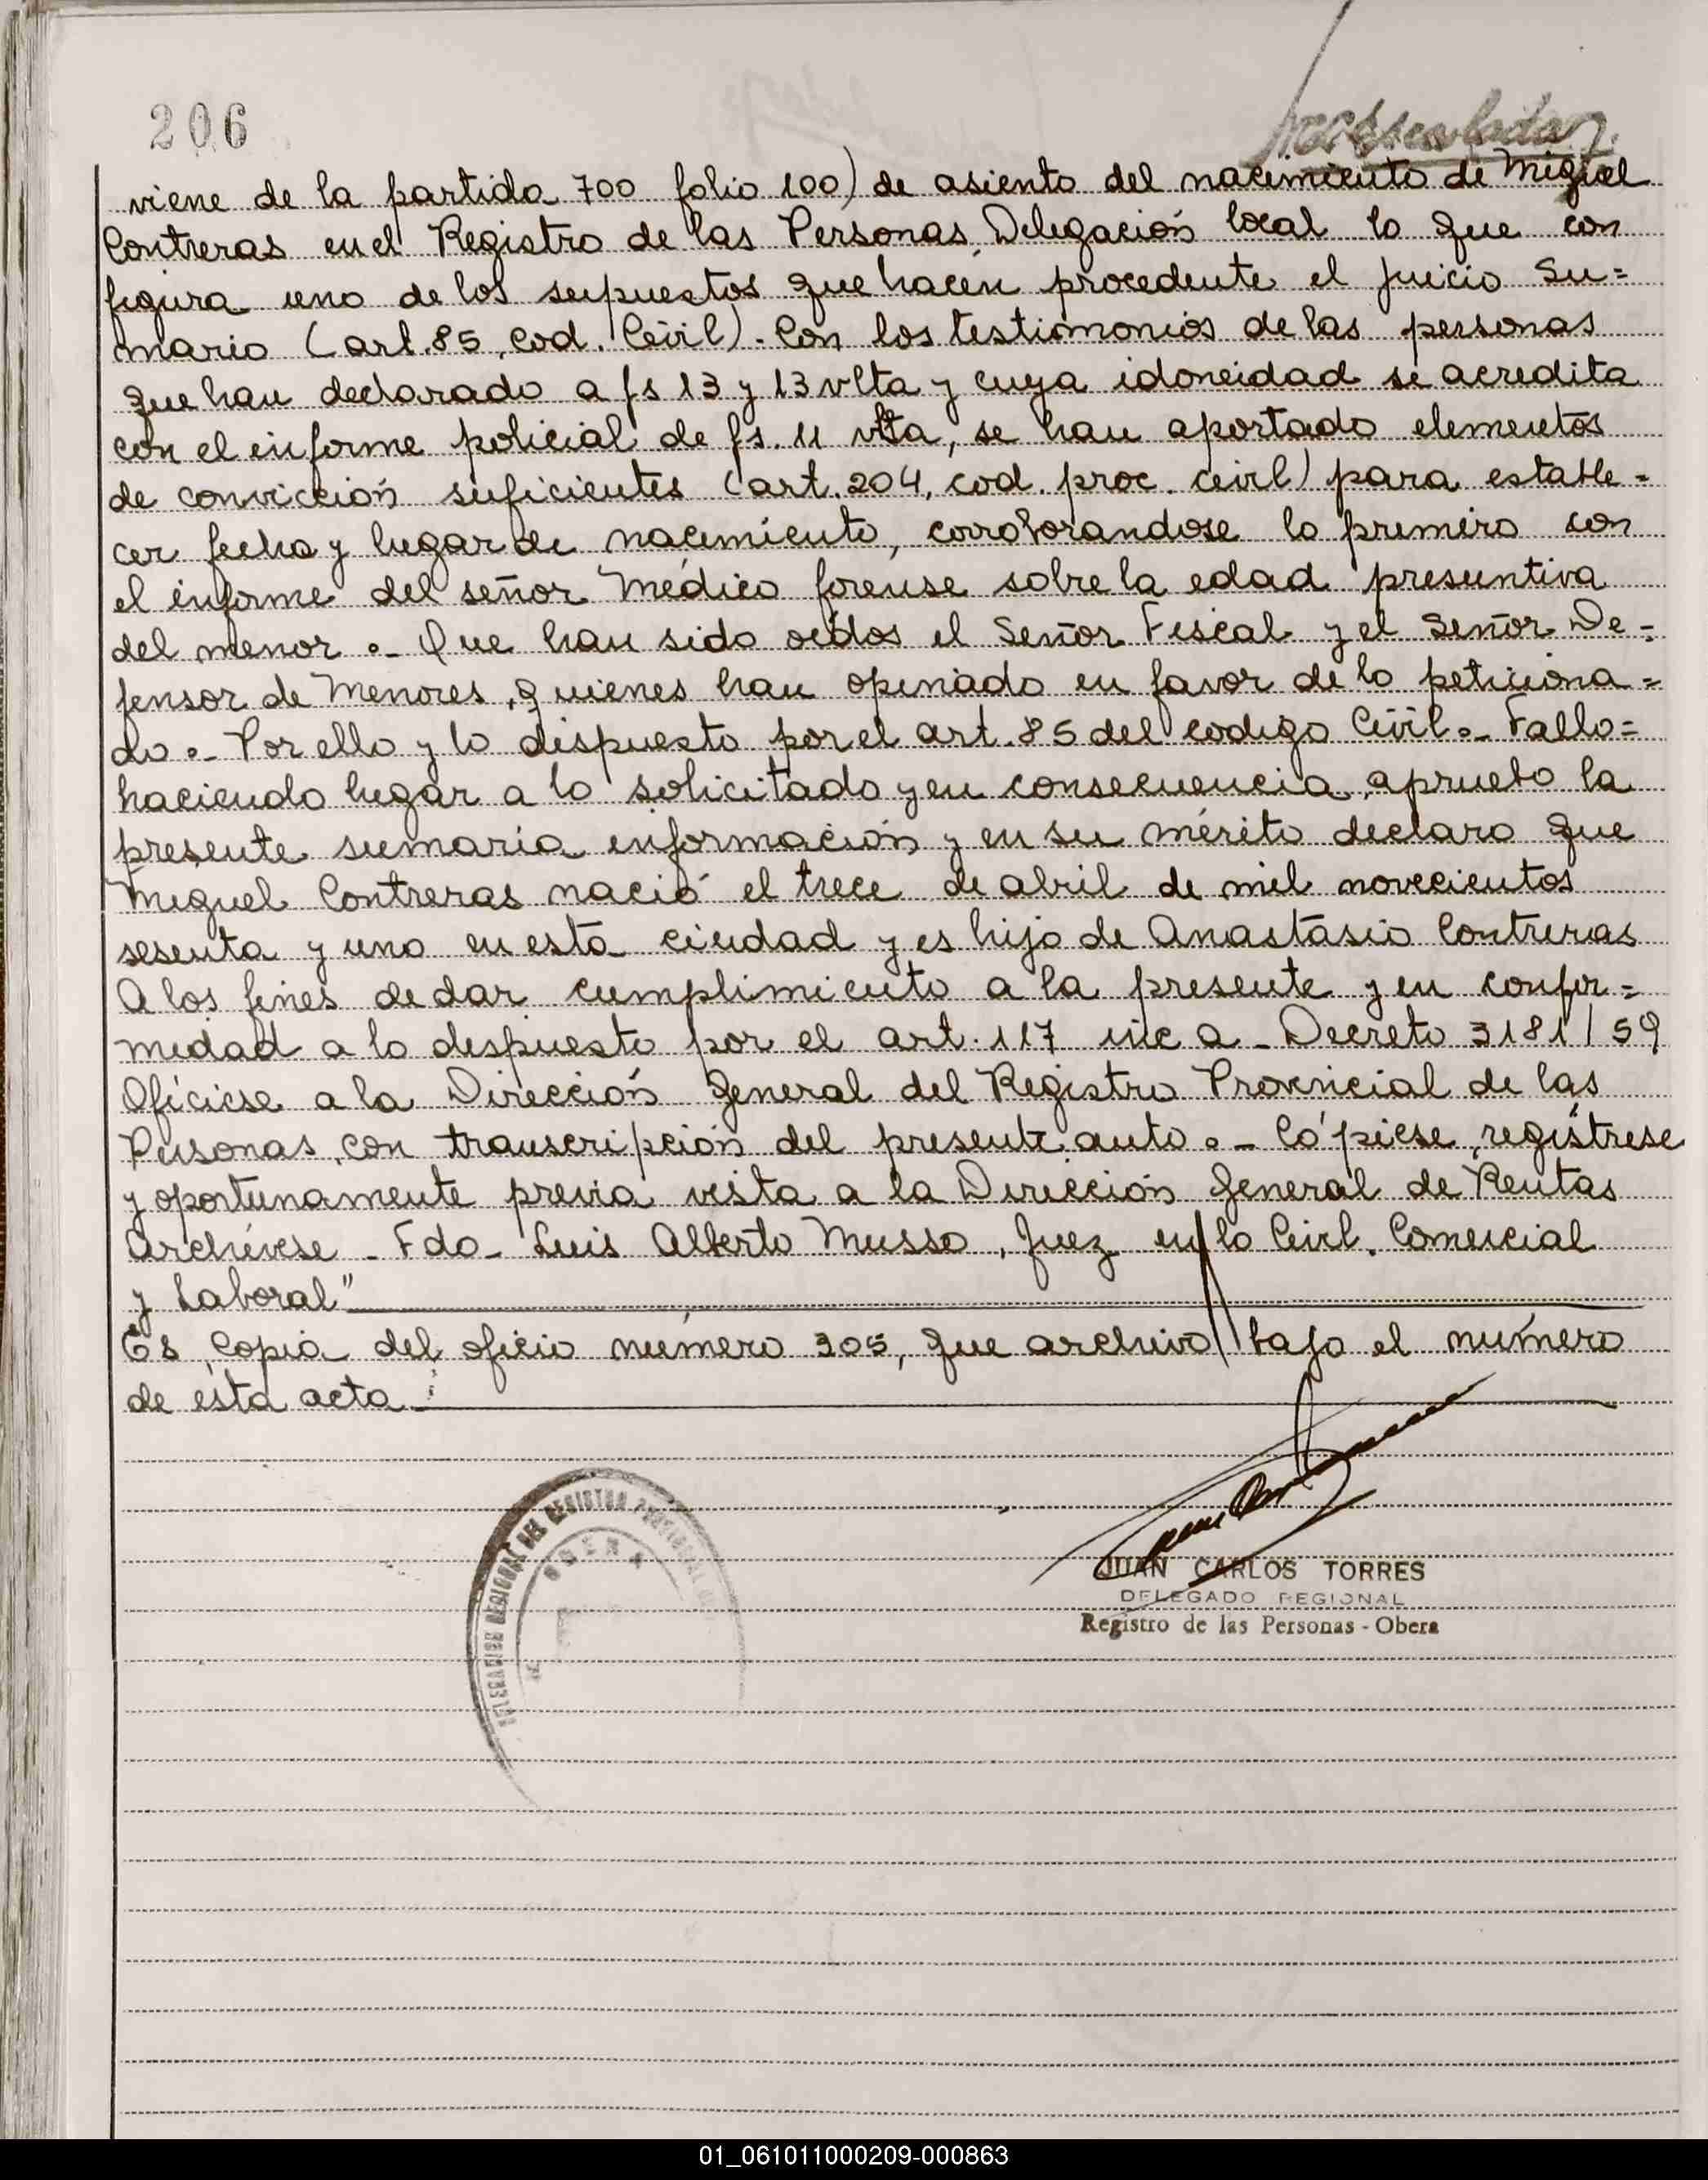 206
viene de la partida 700 folio 100) de asiento del nacimiento de Miguel
Contreras en el Registro de las Personas, Delegación local lo que con
figura uno de los supuestos que hacen procedente el juicio Su=
mario (art. 85, cod. Civil). Con los testimonios de las personas
que han declarado a fs 13 y 13 vlta y cuya idoneidad se acredita
con el informe policial de fs. 11 vlta, se han aportado elementos
de convicción suficientes (art. 204, cod. proc. civil) para estable=
cer fecha y lugar de nacimiento, corroborandose lo primero con
el informe del señor Médico forense sobre la edad presuntiva
del menor.- Que han sido oídos el Señor Fiscal y el Señor De=
fensor de Menores, quienes han opinado en favor de lo peticiona=
do.- Por ello y lo dispuesto por el art. 85 del codigo Civil.- Fallo=
haciendo lugar a lo solicitado y en consecuencia, apruebo la
presente sumaria información y en su mérito declaro que
Miguel Contreras nació el trece de abril de mil novecientos
sesenta y uno en esta ciudad y es hijo de Anastasio Contreras
A los fines de dar cumplimiento a la presente y en confor=
midad a lo dispuesto por el art. 117 inc a - Decreto 3181/59
Ofíciese a la Dirección General del Registro Provincial de las
Personas, con transcripción del presente auto.- Cópiese, regístrese
y oportunamente previa vista a la Dirección General de Rentas
Archívese - Fdo - Luis Alberto Musso, Juez en lo Civil, Comercial
y Laboral"
Es copia del oficio número 305, que archivo bajo el número
de esta acta.
DELEGACION REGIONAL DEL REGISTRO PROVINCIAL DE
OBERA
JUAN CARLOS TORRES
DELEGADO REGIONAL
Registro de las Personas - Obera
01_061011000209-000863